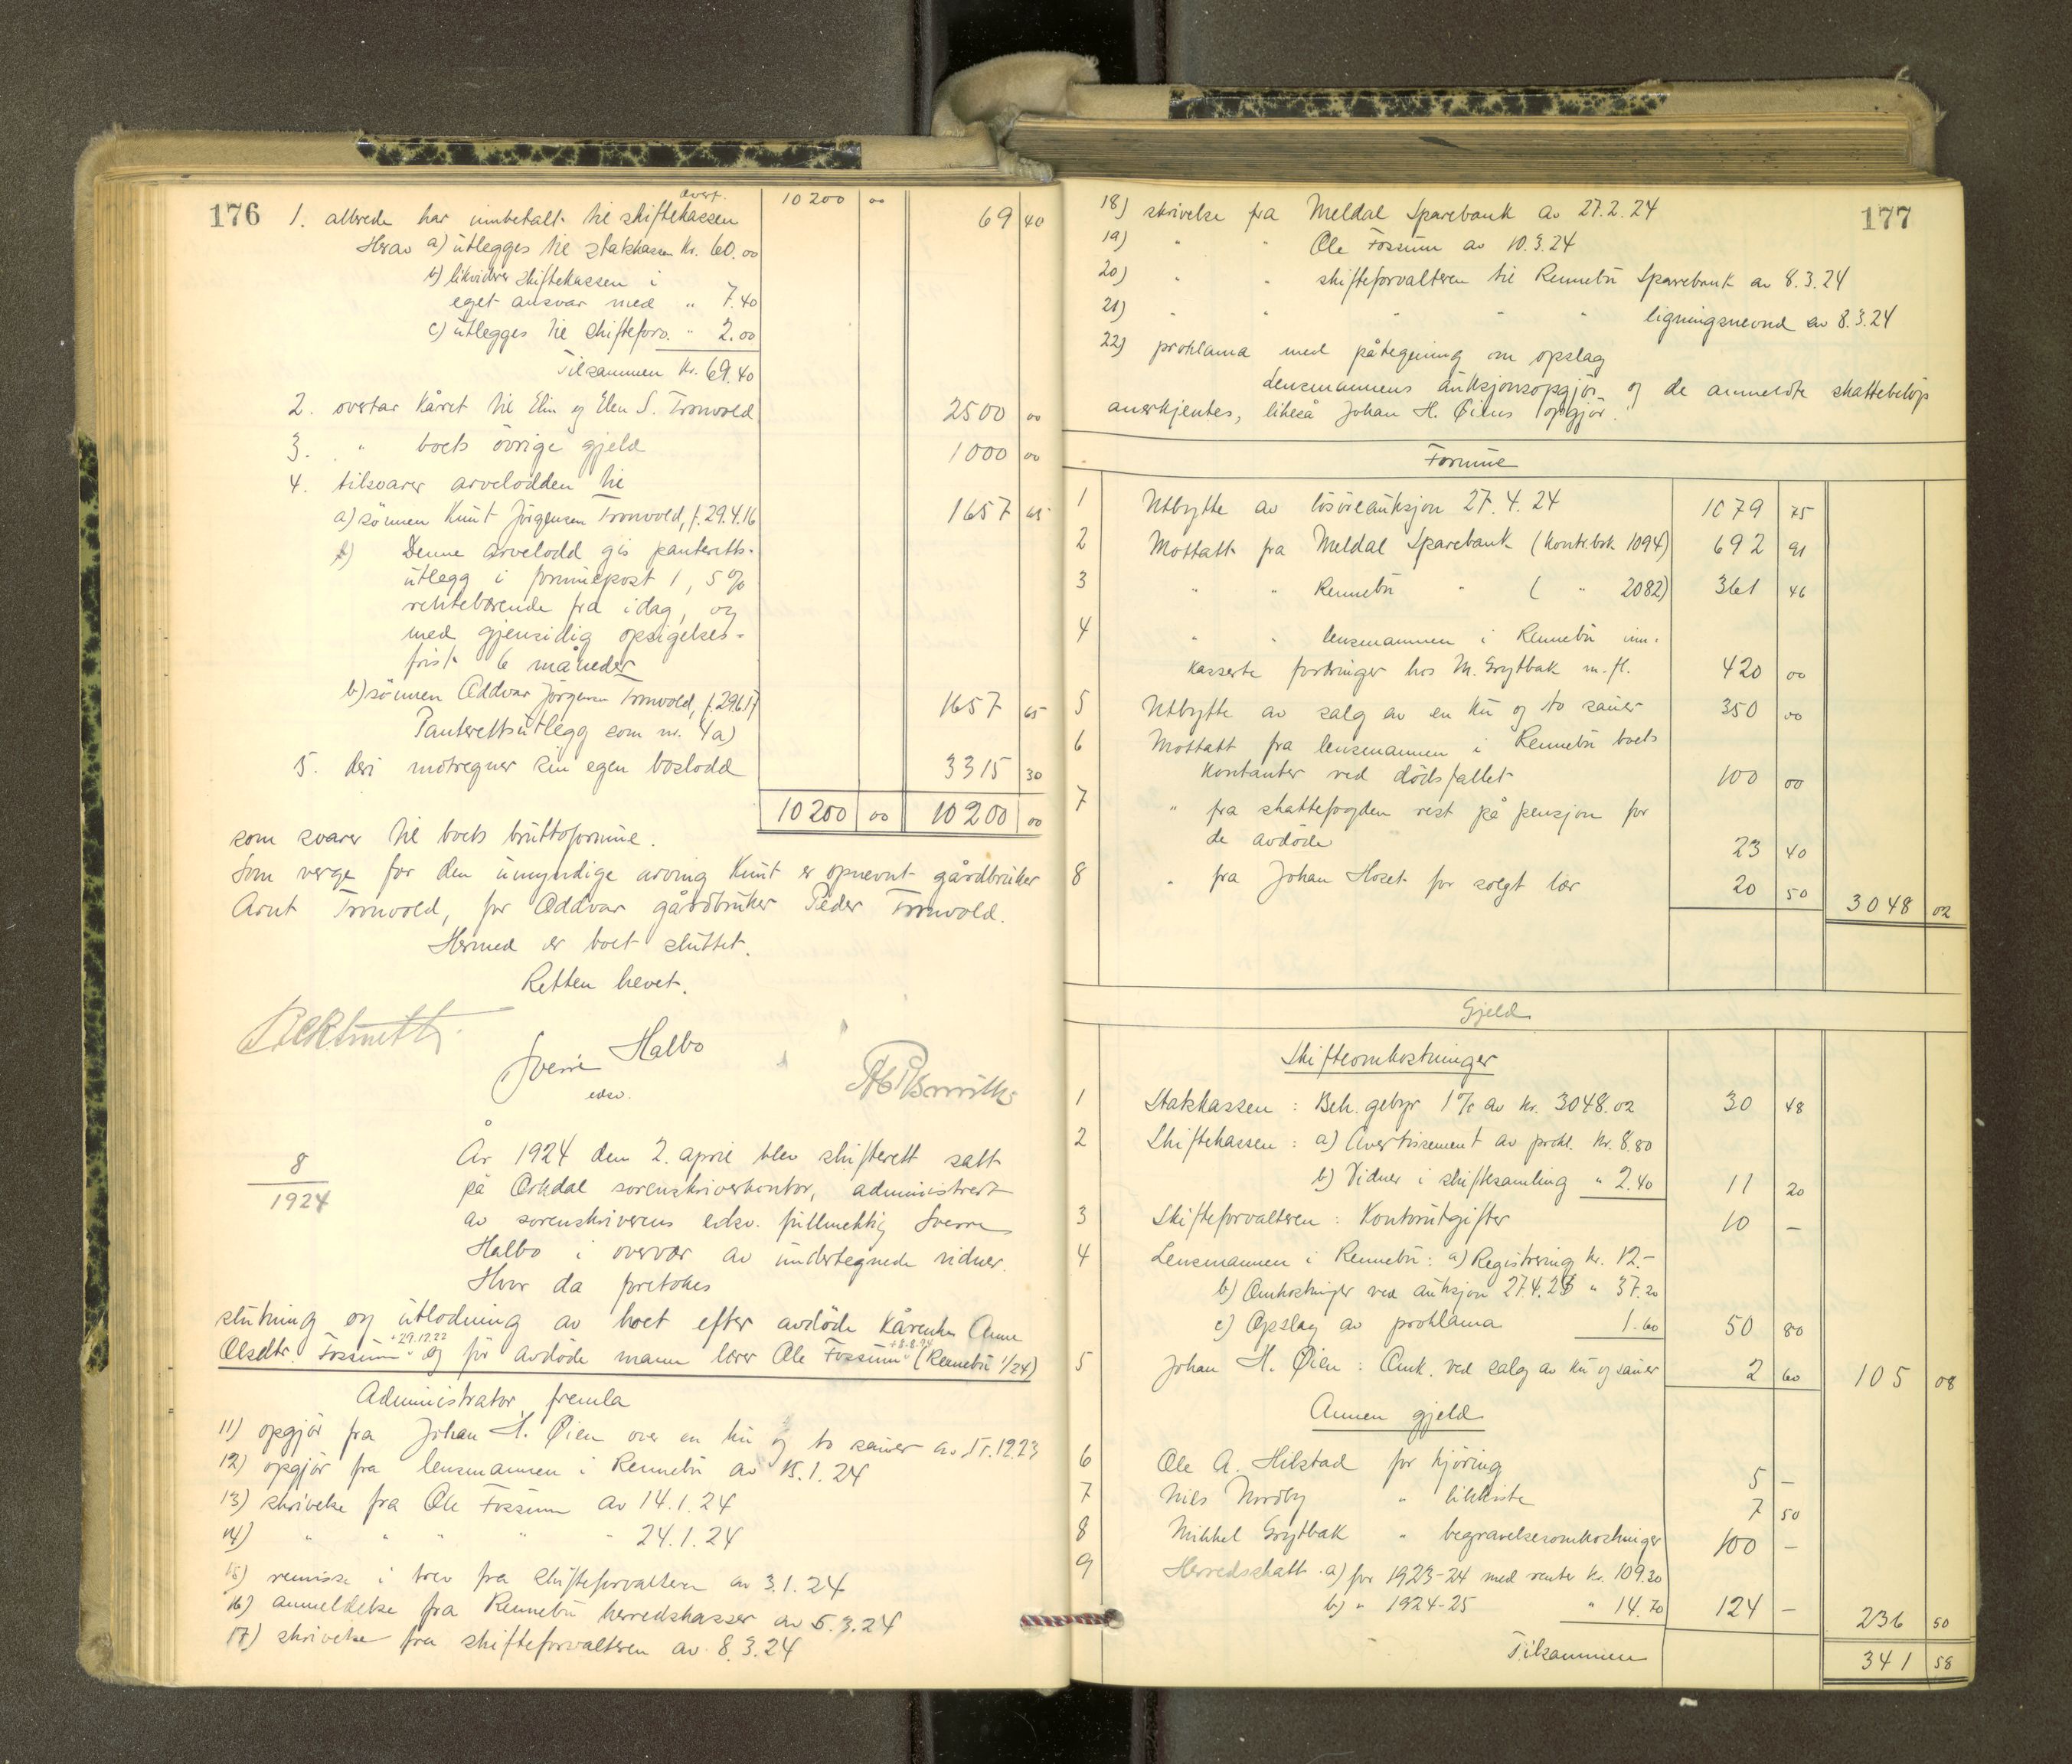 176
overf. 10200 00
1. allerede har innbetalt til skiftekassen 69 40
Herav a) utlegges til stakkassen kr. 60.00
b) likviderer skiftekassen i
eget ansvar med " 7.40
c) utlegges til skifteforv. " 2.00
Tilsammen kr. 69.40
2. overtar kåret til Elin og Elen S. Tronvold 2500 00
3. " boets övrige gjeld 1000 00
4. tilsvarer arvelodden til
a) sönnen Knut Jörgensen Tronvold, f. 29.4.16 1657 65
Denne arvelodd gis panteretts-
utlegg i formuepost 1, 5%
rentebærende fra idag, og
med gjensidig opsigelses-
frist 6 måneder
b) sönnen Oddvar Jörgensen Tronvold, f. 29.6.17 1657 65
Panterettsutlegg som nr. 4a)
5. deri motregner sin egen boslodd 3315 30
10200 00 10200 00
som svarer til boets bruttoformue.
Som verge for den umyndige arving Knut er opnevnt gårdbruker
Arnt Tronvold, for Oddvar gårdbruker Peder Tronvold.
Hermed er boet sluttet.
Retten hevet.
Sverre Halbo
edsv.
8
1924
År 1924 den 2. april blev skifterett satt
på Orkdal sorenskriverkontor, administrert
av sorenskriverens edsv. fullmektig Sverre
Halbo i overvær av undertegnede vidner.
Hvor da foretokes
slutning og utlodning av boet efter avdöde kårenke Anne
Olsdtr. Fossum + 29.12.22 og för avdöde mann lærer Ole Fossum (Rennebu 1/24)
Administrator fremla
11) opgjör fra Johan H. Øien over en ku og to sauer av 15.12.23
12) opgjör fra lensmannen i Rennebu av 15.1.24
13) skrivelse fra Ole Fossum av 14.1.24
14) " " " " " 24.1.24
15) remisse i brev fra skifteforvalteren av 3.1.24
16) anmeldelse fra Rennebu herredskasser av 5.3.24
17) skrivelse fra skifteforvalteren av 8.3.24
177
18) skrivelse fra Meldal Sparebank av 27.2.24
19) " " Ole Fossum av 10.3.24
20) " " skifteforvalteren til Rennebu Sparebank av 8.3.24
21) " " " " " ligningsnevnd av 8.3.24
22) proklama med påtegning om opslag
Lensmannens auksjonsopgjör og de anmeldte skattebelöp
anerkjentes, likeså Johan H. Øiens opgjör.
Formue
1 Utbytte av lösöreauksjon 27.4.24 1079 75
2 Mottatt fra Meldal Sparebank (kontr.bok 1094) 692 91
3 " " Rennebu " ( " 2082) 361 46
4 " " lensmannen i Rennebu inn-
kasserte fordringer hos M. Grytbak m.fl. 420 00
5 Utbytte av salg av en ku og to sauer 350 00
6 Mottatt fra lensmannen i Rennebu boets
kontanter ved dödsfallet 100 00
7 " fra skattefogden rest på pensjon for
de avdöde 23 40
8 " fra Johan Hoset for solgt lær 20 50 3048 02
Gjeld
Skifteomkostninger
1 Statskassen : Beh. gebyr 1% av kr. 3048.02 30 48
2 Skiftekassen : a) Avertissement av prokl. kr. 8.80
b) Vidner i skiftesamling " 2.40 11 20
3 Skifteforvalteren : Kontorutgifter 10 —
4 Lensmannen i Rennebu : a) Registrering kr. 12.–
b) Omkostninger ved auksjon 27.4.23 " 37.20
c) Opslag av proklama 1.60 50 80
5 Johan H. Øien : Omk. ved salg av ku og sauer 2 60 105 08
Annen gjeld
6 Ole A. Hilstad for kjöring 5 —
7 Nils Nordby " likkiste 7 50
8 Mikkel Grytbak " begravelsesomkostninger 100 —
9 Herredsskatt a) for 1923-24 med renter kr. 109.30
b) " 1924-25 " 14.70 124 — 236 50
Tilsammen 341 58